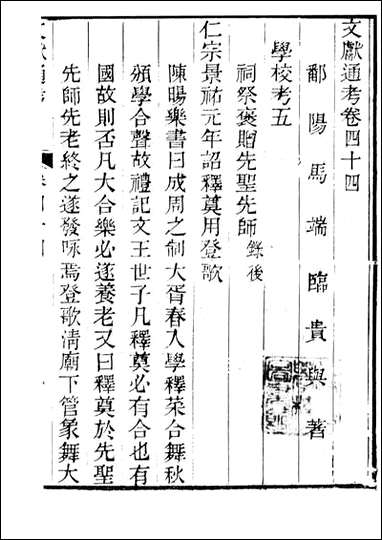 文獻通考卷四十四
鄱陽馬端臨貴與著
學校考五
祠祭褒贈先聖先師錄後
仁宗景祐元年詔釋奠用登歌
陳暘樂書曰成周之制大胥春入學釋菜合舞秋
頒學合聲故禮記文王世子凡釋奠必有合也有
國故則否凡大合樂必遂養老又曰釋奠於先聖
先師先老終之遂發咏焉登歌清廟下管象舞大